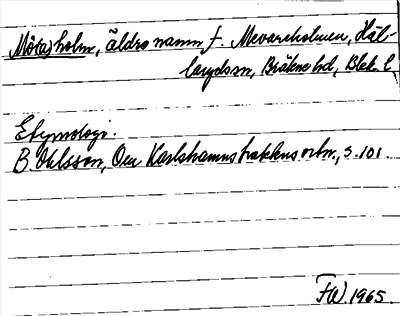 Möcaholm, äldre namn f. Mevareholmen, Häl-
laryds sn, Bräkne hd, Blek. l.
Etymologi.
B. Ohlsson, Om Karlshamnstraktens ortn., s. 101.
FW. 1965.